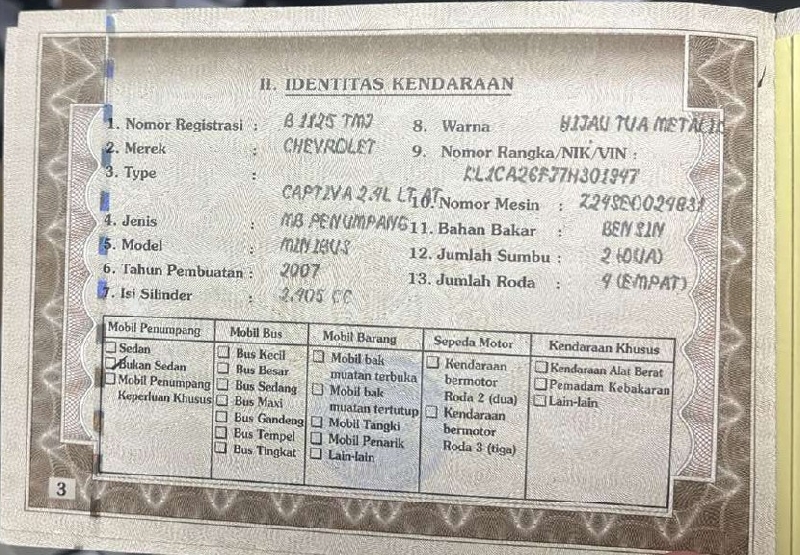 II. IDENTITAS KENDARAAN
1. Nomor Registrasi : B 1125 TMJ
2. Merek : CHEVROLET
3. Type :
CAPTIVA 2.4L LT AT
4. Jenis : MB PENUMPANG
5. Model : MINIBUS
6. Tahun Pembuatan : 2007
7. Isi Silinder : 2.405 CC
8. Warna HIJAU TUA METALIK
9. Nomor Rangka/NIK/VIN :
10. Nomor Mesin :
11. Bahan Bakar : BENSIN
12. Jumlah Sumbu : 2 (DUA)
13. Jumlah Roda : 4 (EMPAT)
Mobil Penumpang
Sedan
Bukan Sedan
Mobil Penumpang
Keperluan Khusus
Mobil Bus
Bus Kecil
Bus Besar
Bus Sedang
Bus Maxi
Bus Gandeng
Bus Tempel
Bus Tingkat
Mobil Barang
Mobil bak
muatan terbuka
Mobil bak
muatan tertutup
Mobil Tangki
Mobil Penarik
Lain-lain
Sepeda Motor
Kendaraan
bermotor
Roda 2 (dua)
Kendaraan
bermotor
Roda 3 (tiga)
Kendaraan Khusus
Kendaraan Alat Berat
Pemadam Kebakaran
Lain-lain
3